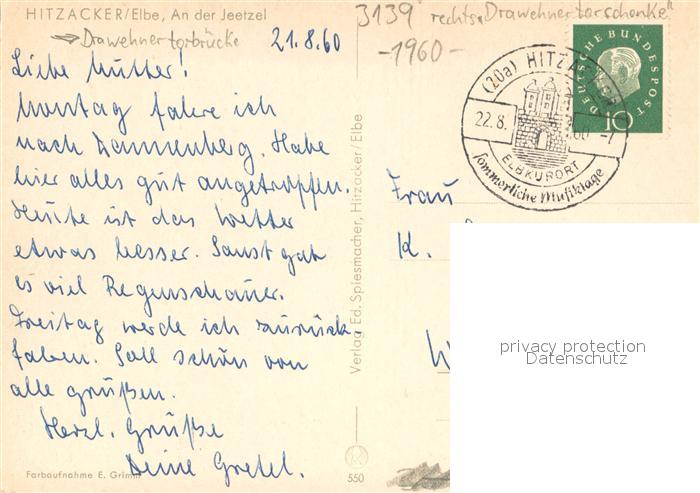 HITZACKER/Elbe, An der Jeetzel
Drawehnertorbrücke
21.8.60
3139 rechts "Drawehnertorschenke"
-1960-
Liebe Mutter!
Montag fahre ich
nach Dannenberg. Habe
hier alles gut angetroffen.
Heute ist das Wetter
etwas besser. Sonst gab
es viel Regenschauer.
Freitag werde ich zurück-
fahren. Soll schön von
alle grüßen.
Herzl. Grüße
Deine Gretel.
Farbaufnahme E. Grimm
Verlag Ed. Spiesmacher, Hitzacker/Elbe
550
(20a) HITZACKER
22.8. 60 -7
ELBKURORT
Sommerliche Musiktage
DEUTSCHE BUNDESPOST
10
Frau
K.
privacy protection
Datenschutz